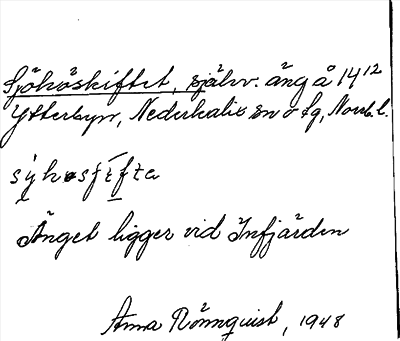 Sjöhöskiftet, självv. äng å 14¹²
Ytterbyn, Nederkalix sn o tg, Norrb. l.
Änget ligger vid Infjärden
Anna Rönnquist, 1948